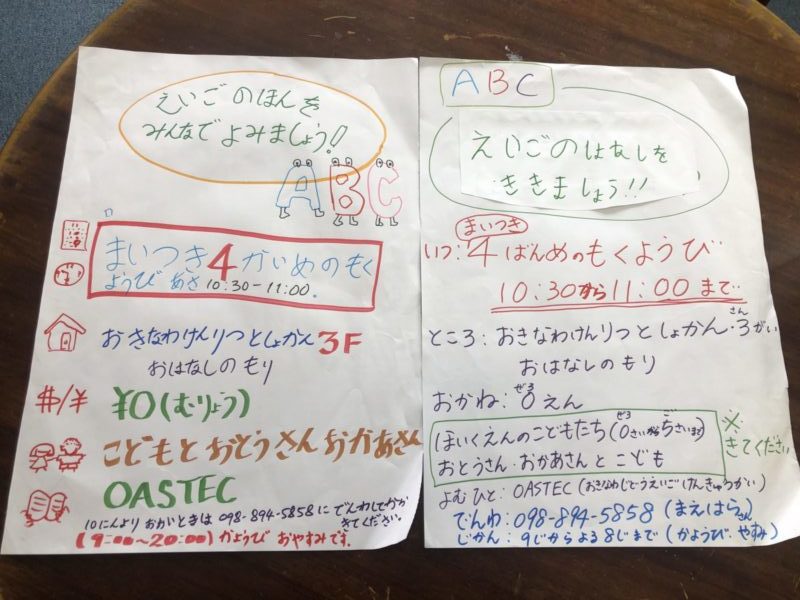 えいごのほんを
みんなでよみましょう!
ABC
まいつき4かいめのもく
ようび あさ 10:30-11:00.
おきなわけんりつとしょかん3F
おはなしのもり
$/¥ ¥0(むりょう)
こどもとおとうさんおかあさん
OASTEC
10にんよりおおいときは 098-894-5858に でんわしてから
きてください。
(9:00~20:00)かようび おやすみです.
ABC
えいごのはなしを
ききましょう!!
まいつき
いつ:4ばんめのもくようび
10:30から11:00まで.
ところ:おきなわけんりつとしょかん・3がい
さん
おはなしのもり
おかね:0えん
ぜろ
ほいくえんのこどもたち(0さいから5さいまで)
ぜろ
ご
おとうさん・おかあさんとこども
※
きてください
よむひと:OASTEC(おきなわじどうえいごけんきゅうかい)
でんわ:098-894-5858(まえはらさん)
じかん:9じからよる8じまで(かようび・やすみ)